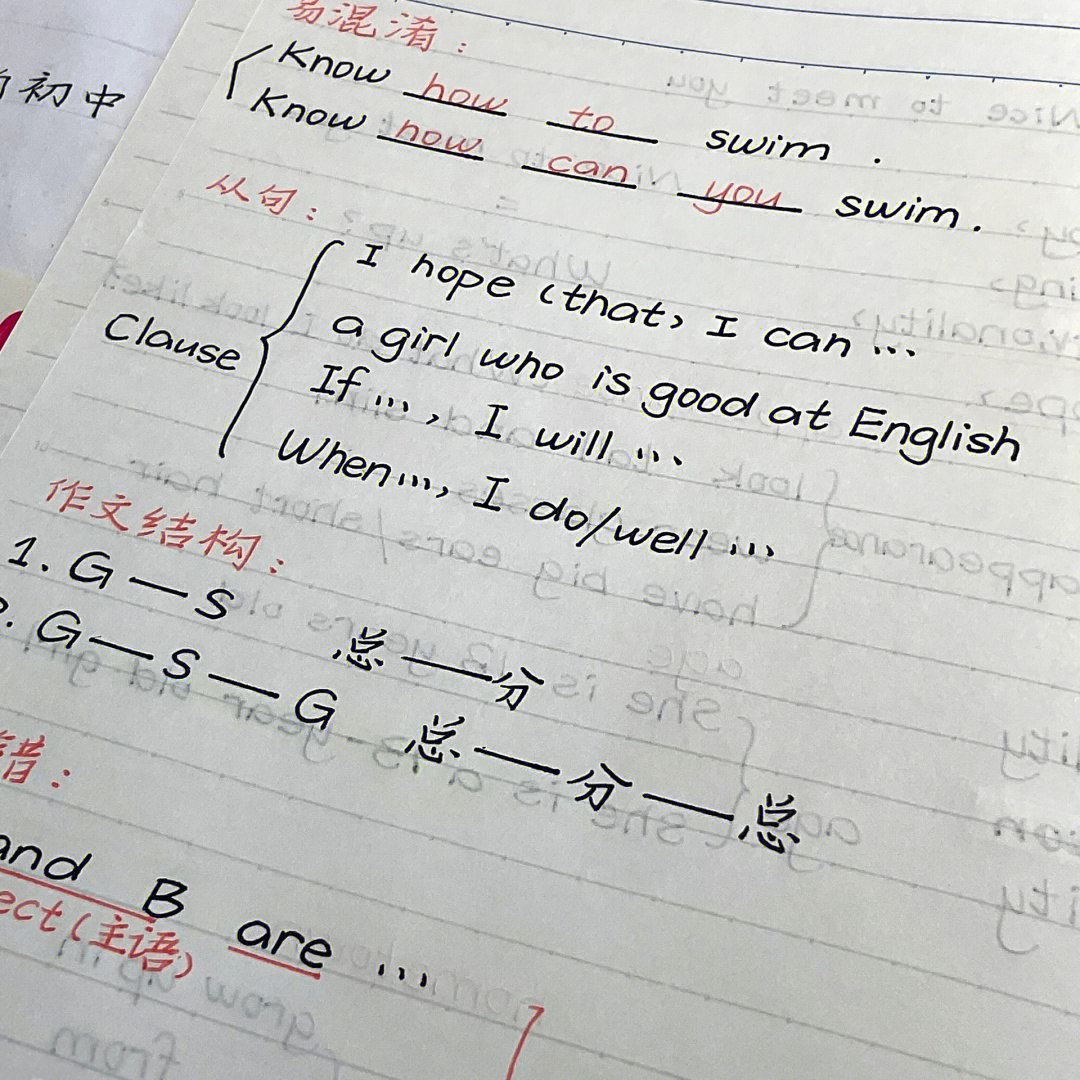 易混淆：
Know how to swim .
Know how can you swim .
初中
从句：
Clause
I hope (that) I can ...
a girl who is good at English
If ... , I will ...
When ... , I do/well ...
作文结构：
1. G — S 总 — 分
G — S — G 总 — 分 — 总
错：
and B are ...
(主语)